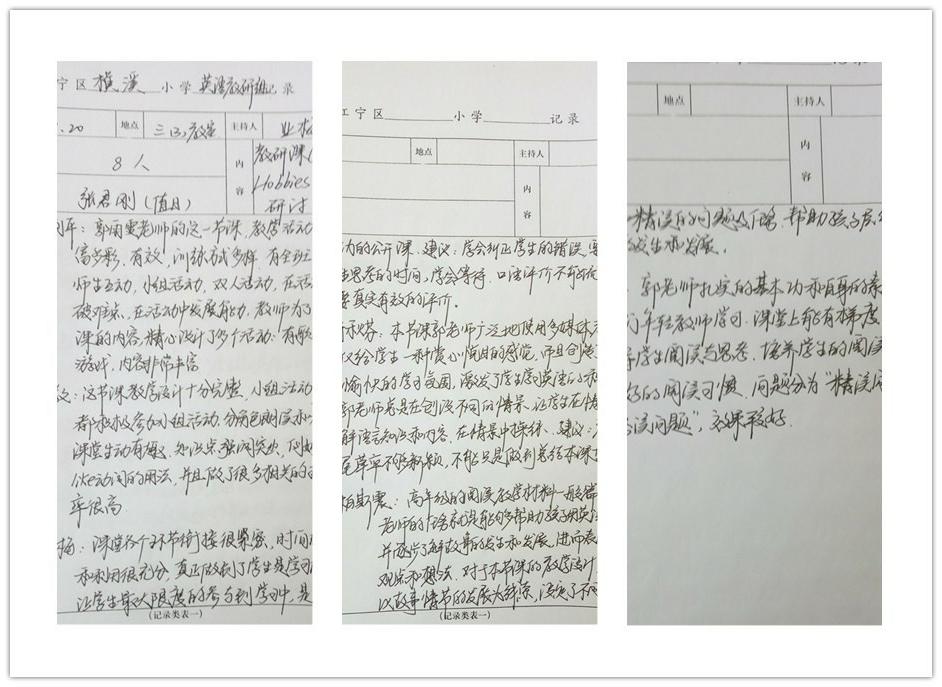 宁区 横溪 小学 英语教研组记录
.20 地点 三(3)教室 主持人
8人 内容 教研课
Hobbies
张君刚(值日) 研讨
年：郭雨雯老师的这一节课，教学活动
富多彩，有效，训练方式多样，有全班
师生互动，小组活动，双人活动，在活
破难点，在活动中发展能力，教师为了
课的内容，精心设计了多个活动：有歌
游戏，内容非常丰富
：这节课教学设计十分完整，小组活动
都积极参加小组活动，分角色朗读和
课堂生动有趣，知识点强调突出，例如
like动词的用法，并且做了很多相关的
率很高
梅：课堂各个环节衔接很紧密，时间
和利用很充分，真正做到了学生是学习
让学生最大限度的参与到学习中，是
(记录类表一)
江宁区 小学 记录
地点 主持人
内容
功的公开课，建议：学会纠正学生的错误，要
思考的时间，学会等待，口语评价不能
要真实有效的评价。
：本节课郭老师广泛地使用多媒体
仅给学生一种赏心悦目的感觉，而且创造
愉快的学习氛围，激发了学生学习英语的
郭老师总是在创设不同的情景，让学生在情
解语言知识和内容，在情景中操练，建议：
尾草草不够新颖，不能只是做到总结本课
震：高年级的阅读教学材料一般都
老师的任务就是能够帮助孩子用英
并逐步了解故事的发生和发展，进而表
观点和想法，对于本节课的教学设计
以故事情节的发展为线索，设定了不同
(记录类表一)
记录
地点 主持人
内容
精读的问题，帮助孩子层
发生和发展。
郭老师扎实的基本功和自身的素
们年轻教师学习，课堂上能有梯度
导学生阅读与思考，培养学生的阅读
好的阅读习惯，问题分为“精读
读问题”，效果较好。